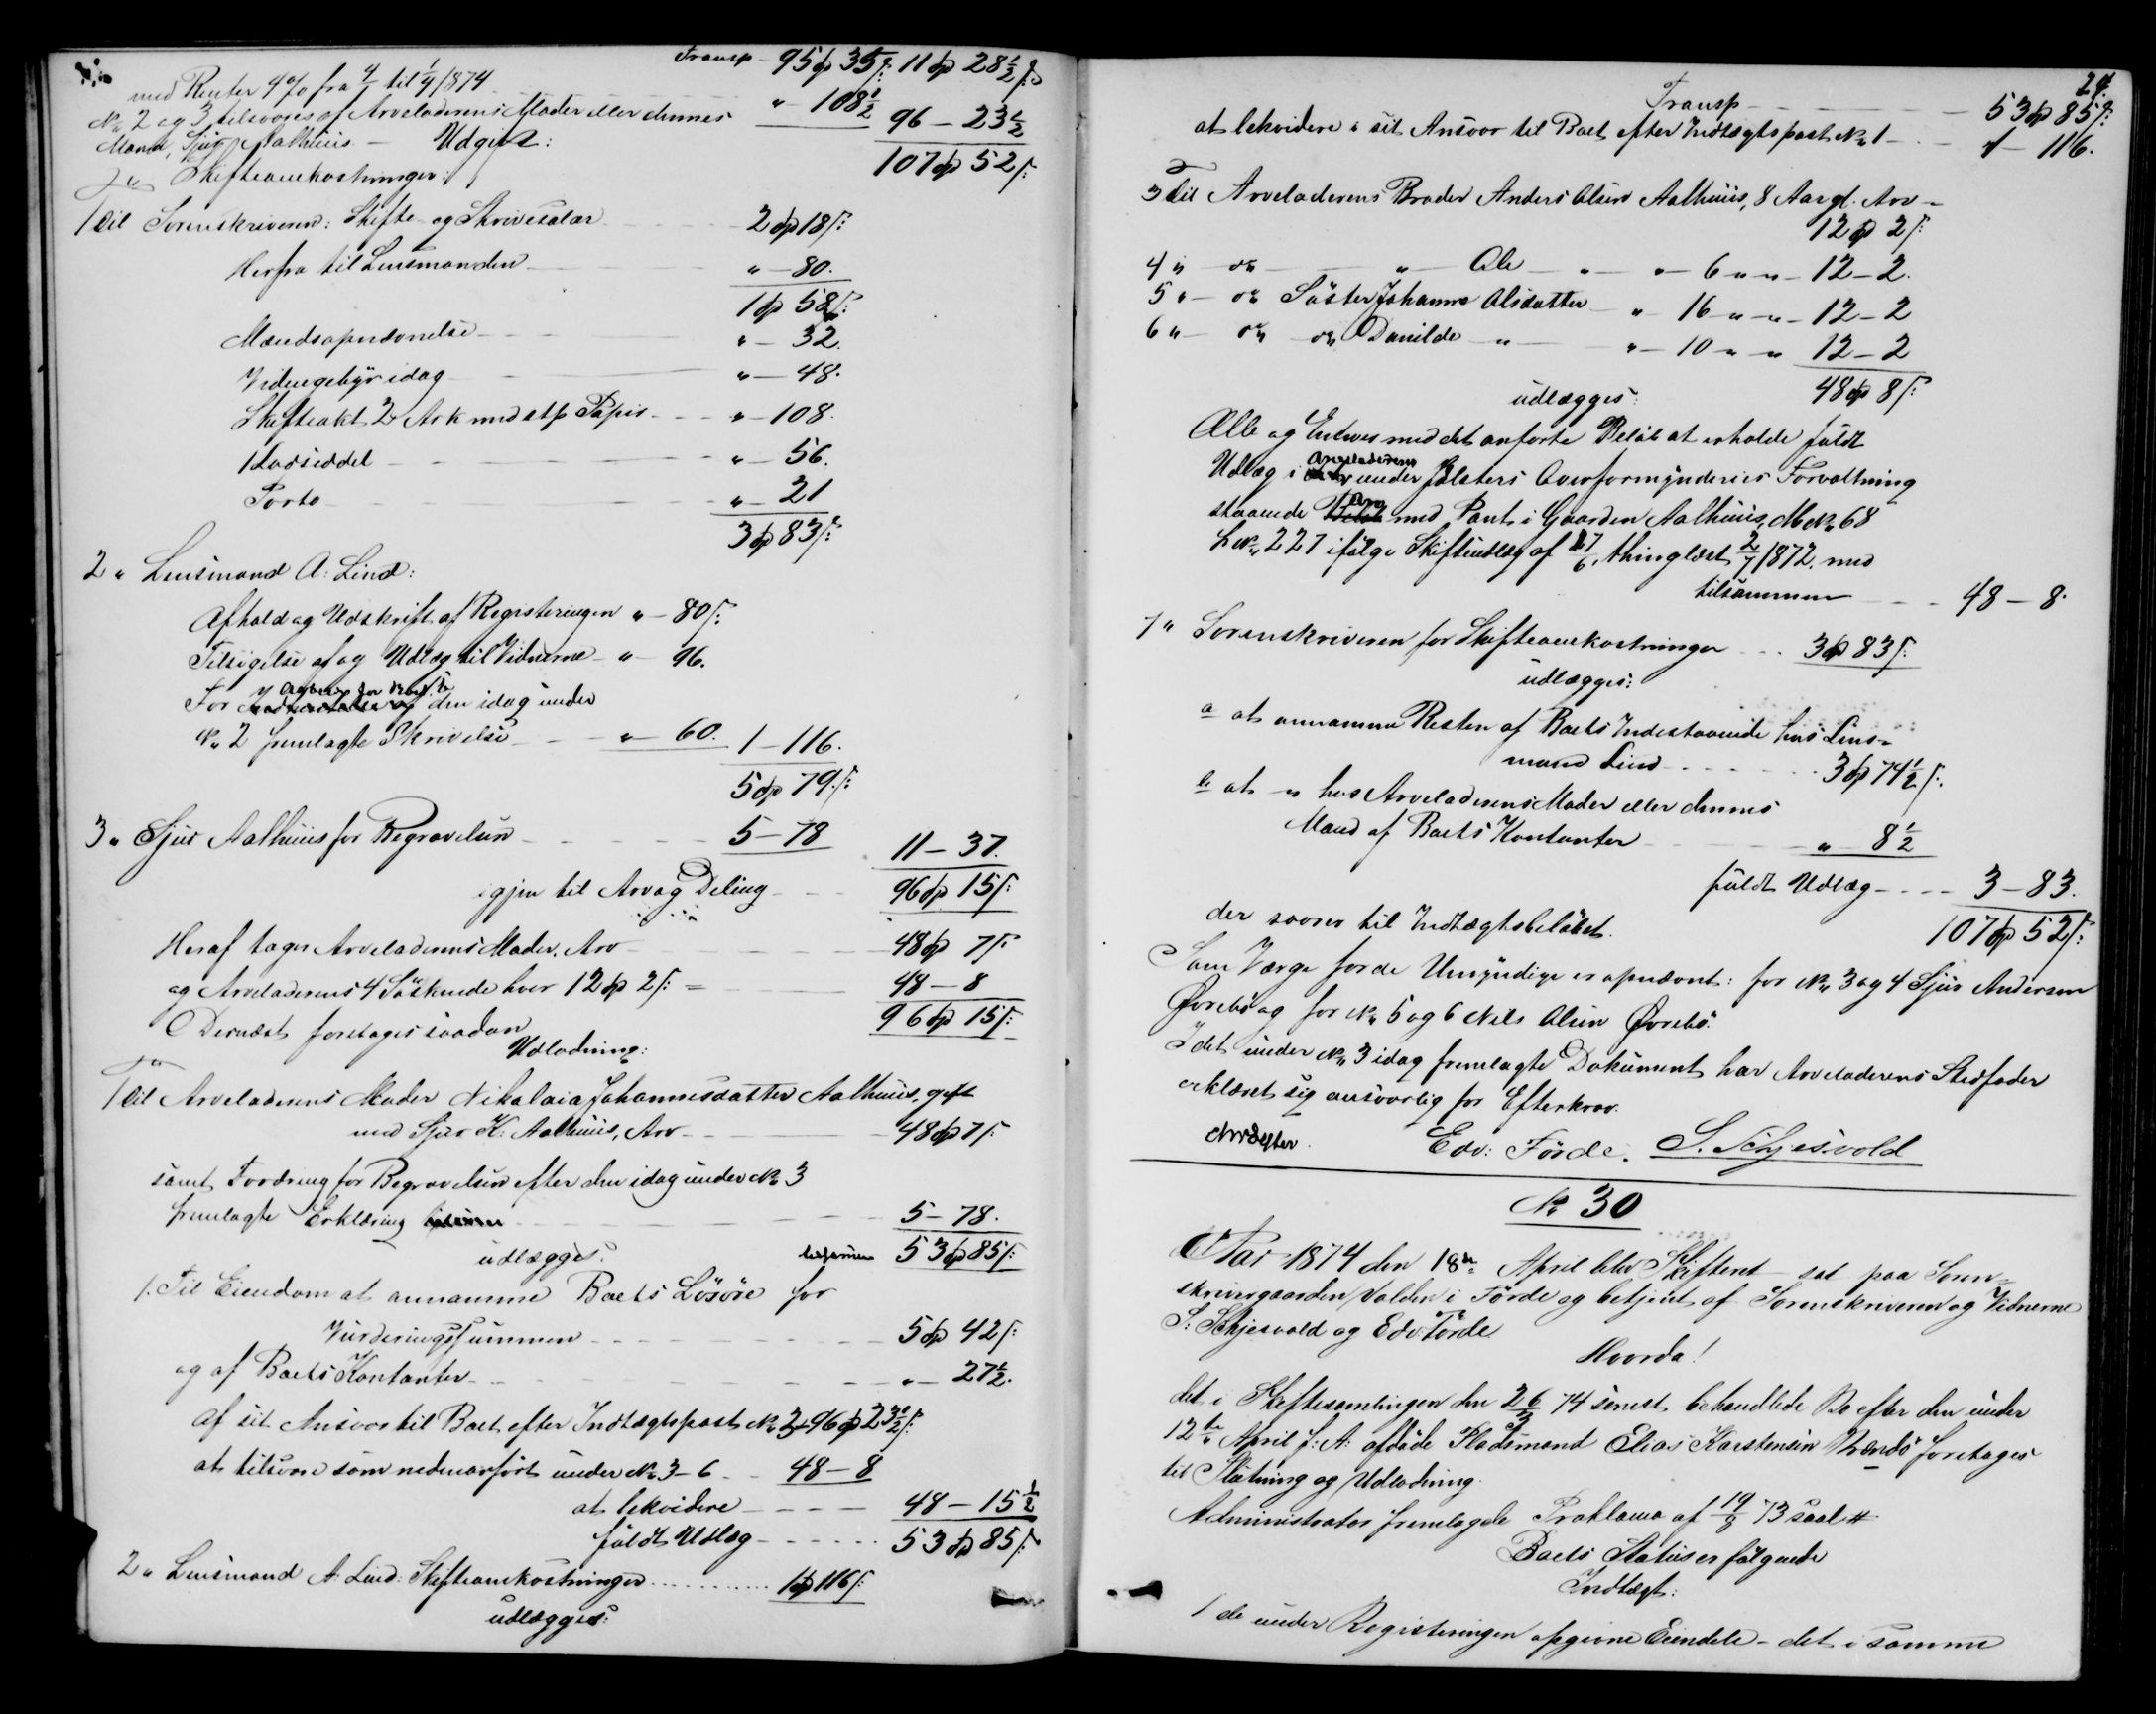 Transp - 95 dp 35 s: 11 dp 28 1/2 s:
med Renter 4 % fra til 1/4 1874 " - 108 1/2
No 2 og 3 tilsvares af Arveladerens Moder eller dennes 96 - 23 1/2
Mand, Sjur Aalhuus - Udgivt: 107 dp 52 s:
Skifteomkostninger:
1 til Sorenskriveren: Skifte- og Skrivesalær 2 dp 18 s:
Herfra til Lensmanden " - 80.
1 dp 58 s:
Mændsopnævnelse " - 32.
Vidnegebyr idag " - 48.
Skifteakt 2 Ark med stp Papir " - 108.
1 Lodseddel " - 56.
Porto " - 21
3 dp 83 s:
2 " Lensmand A: Lind:
Afhold og Udskrift af Registeringen " - 80 s:
Tilsigelse af og Udlæg til Vidnerne - " - 96.
For den idag under
No 2 fremlagte Skrivelse " - 60. 1 - 116.
5 dp 79 s:
3 " Sjur Aalhuus for Begravelsen 5 - 78 11 - 37.
igjen til Arv og Deling 96 dp 15 s:
Heraf tager Arveladerens Moder, Arv 48 dp 7 s:
og Arveladerens 4 Söskende hver 12 dp 2 s: = 48 - 8
Dernæst foretages saadan 96 dp 15 s:
Udlodning:
1 til Arveladerens Moder Nikolaia Johannesdatter Aalhuus, gift
med Sjur K: Aalhuus, Arv 48 dp 7 s:
samt Fordring for Begravelsen efter den idag under No 3
fremlagte Erklæring 5 - 78.
udlægges: tilsammen 53 dp 85 s:
1. Til Eiendom at annamme Boets Lösöre for
Vurderingssummen 5 dp 42 s:
og af Boets Kontanter " - 27 1/2.
af sit Ansvar til Boet efter Indtægtspost No 3 - 96 dp 23 1/2 s:
at tilsvare som nedenanfört under No 3 - 6 48 - 8
at lekvidere 48 - 15 1/2
fuldt Udlæg 53 dp 85 s:
2 " Lensmand A. Lind: Skifteomkostninger 1 dp 116 s:
udlægges:
24.
Transp 53 dp 85 s:
at lekvidere i sit Ansvar til Boet efter Indtægtspost No 1 1 - 116.
3 til Arveladerens Broder Anders Olsen Aalhuus, 8 Aar gl. Arv -
12 dp 2 s:
4 " - do " Ole " " - 6 " " - 12 - 2.
5 " - do Söster Johanne Olsdatter " 16 " " - 12 - 2
6 " - do do Danilde " " - 10 " " 12 - 2
udlægges: 48 dp 8 s:
Alle og Enhver med det anförte Belöb at erholde fuldt
Udlæg i Arveladerens under Jölsters Overformynderies Forvaltning
staaende Arv med Pant i Gaarden Aalhuus, M No 68
L No 227 ifölge Skifteudlæg af 27/6, thinglæst 2/7 1872. med
tilsammen 48 - 8.
7 " Sorenskriveren for Skifteomkostninger 3 dp 83 s:
udlægges:
a at annamme Resten af Boets Indestaaende hos Lens=
mand Lind 3 dp 74 1/2 s:
b at " hos Arveladerens Moder eller dennes
Mand af Boets Kontanter " 8 1/2
fuldt Udlæg 3 - 83.
der svarer til Indtægtsbelöbet. 107 dp 52 s:
Som Værge for de Umyndige er opnævnt: for No 3 og 4 Sjur Andersen
Örebö og for No 5 og 6 Nils Olsen Örebö.
I det under No 3 idag fremlagte Dokument har Arveladerens Stedfader
erklæret sig ansvarlig for Efterkrav.
Edv: Förde. S. Schjesvold
No 30
Aar 1874 den 18de April blev Skifteret sat paa Soren=
skrivergaarden Valden i Förde og betjent af Sorenskriveren og Vidnerne
S: Schjesvold og Edv: Förde
Hvorda!
det i Skiftesamlingen den 26/3 74 senest behandlede Bo efter den under
12te April f: A: afdöde Pladsmand Elias Karstensen foretages
til Slutning og Udlodning.
Administrator fremlagde Proklama af 73 saal #
Boets Status er fölgende
Indtægt:
1 de under Registeringen opgivne Eiendele - det i samme